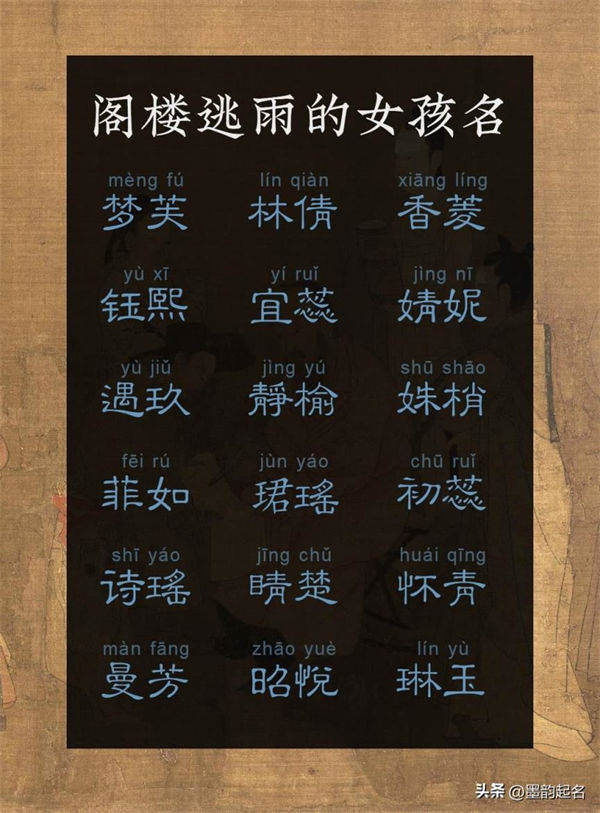 阁楼逃雨的女孩名
mèng fú lín qiàn xiāng líng
梦芙 林倩 香菱
yù xī yí ruǐ jìng nī
钰熙 宜蕊 婧妮
yù jiǔ jìng yú shū shāo
遇玖 靜榆 姝梢
fēi rú jùn yáo chū ruǐ
菲如 珺瑶 初蕊
shī yáo jīng chǔ huái qīng
诗瑶 睛楚 怀青
màn fāng zhāo yuè lín yù
曼芳 昭悦 琳玉
头条 @墨韵起名